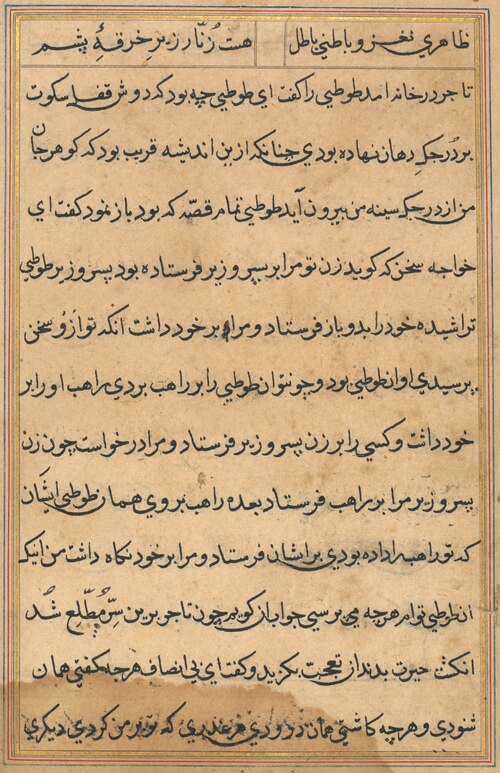 ظاهري نغز و باطني باطل هست زُنّار زیر خرقهٔ پشم
تاجر در خانه امد طوطي را گفت اي طوطي چه بود که دوش قفل سکوت
بر دُرجکِ دهان نهاده بودي چنانکه ازین اندیشه قریب بود که کوهر جان
من از درجک سینه من بیرون آید طوطي تمام قصّه که بود باز نمود کفت اي
خواجه سخن که کوید زن تو مرا بر پسر وزیر فرستاده بود پسر وزیر طوطي
تراشیده خود را بدو باز فرستاد و مرا بر خود داشت آنکه تو ازو سخن
پرسیدي او ان طوطي بود و چو نتوان طوطي را بر راهب بردي راهب او را بر
خود داشت و کسي را بر زن پسر وزیر فرستاد و مرا درخواست چون زن
پسر وزیر مرا بر راهب فرستاد بعده راهب بر وي همان طوطي ایشان
که تو راهب را داده بودي بر ایشان فرستاد و مرا بر خود نکاه داشت من اینک
ان طوطي توام هرچه مي پرسي جواب ان کویم چون تاجر برین سرّ مُطّلع شُد
انکشت حیرت بدندان تعجب بکزید و کفت اي بي انصاف هرچه کفتي همان
شنودي و هرچه کاشتي همان درودي که تو بر من کردي دیکري